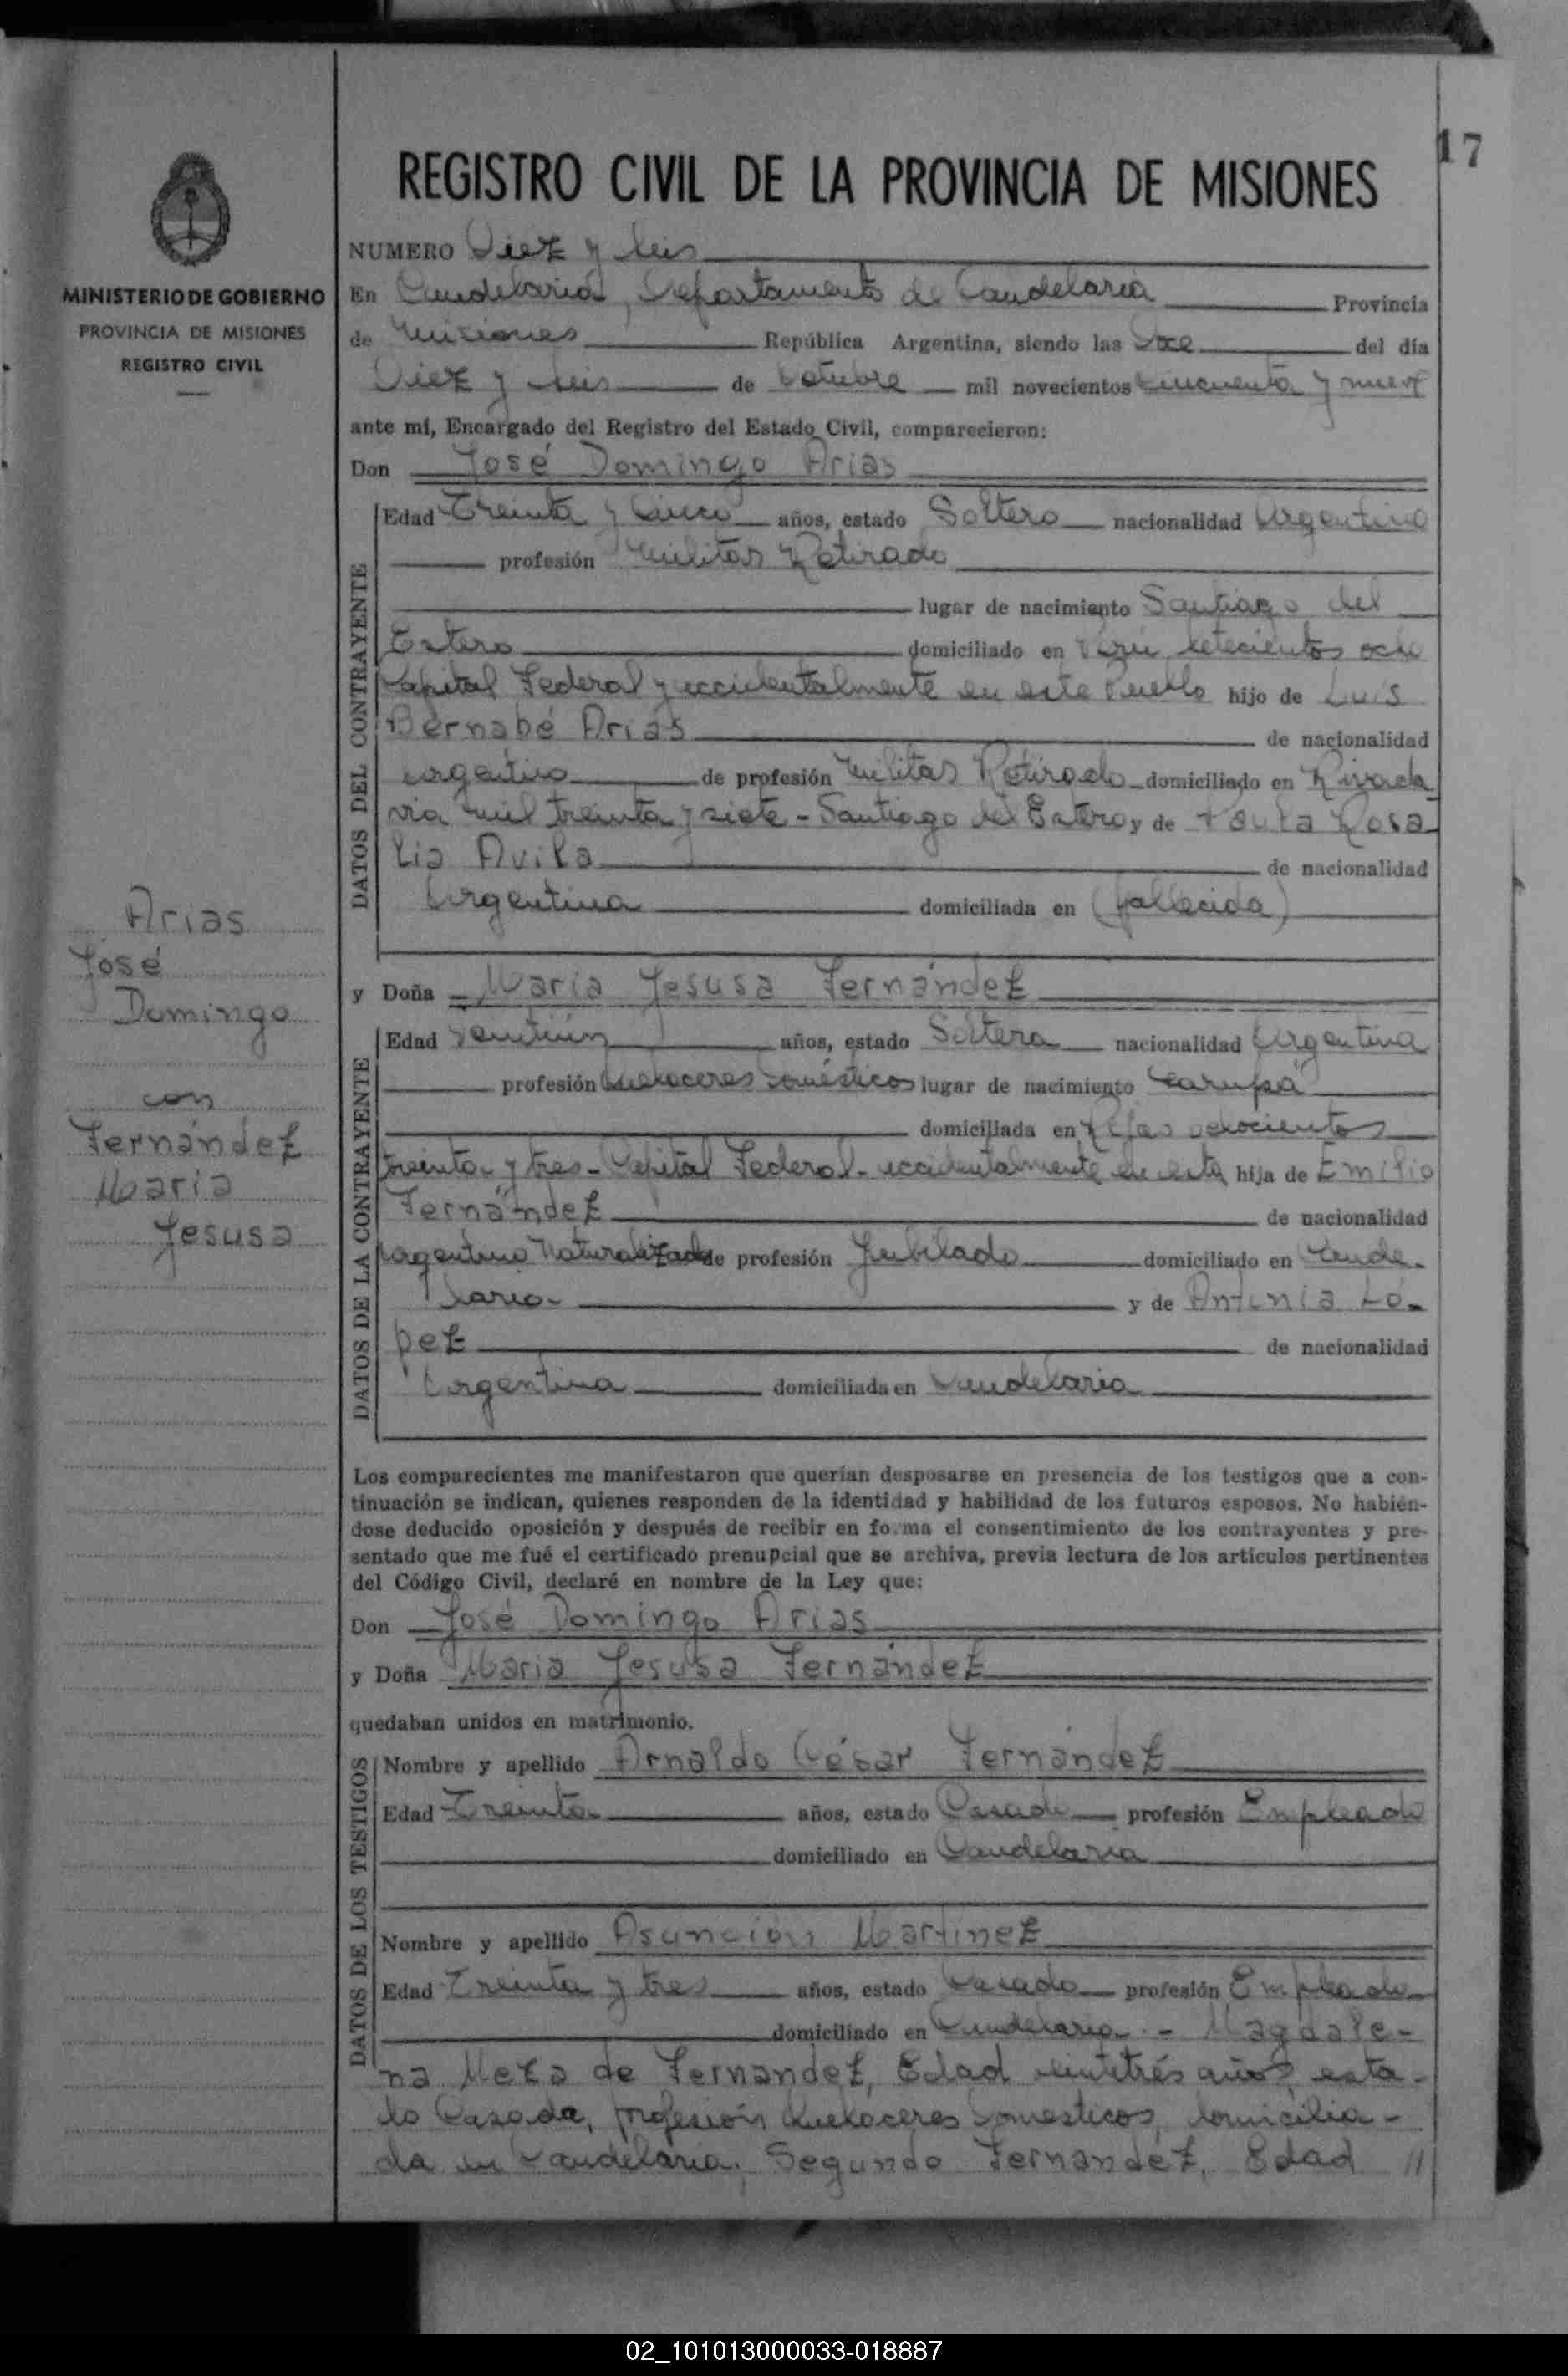 17
REGISTRO CIVIL DE LA PROVINCIA DE MISIONES
MINISTERIO DE GOBIERNO
PROVINCIA DE MISIONES
REGISTRO CIVIL
NUMERO Diez y seis
En Candelaria, Departamento de Candelaria Provincia
de Misiones República Argentina, siendo las Doce del día
Diez y seis de Octubre mil novecientos cincuenta y nueve
ante mí, Encargado del Registro del Estado Civil, comparecieron:
Don José Domingo Arias
DATOS DEL CONTRAYENTE
Edad Treinta y cinco años, estado Soltero nacionalidad Argentino
profesión Militar Retirado
lugar de nacimiento Santiago del
Estero domiciliado en Perú setecientos ocho
Capital Federal y accidentalmente en este Pueblo hijo de Luis
Bernabé Arias de nacionalidad
argentino de profesión Militar Retirado domiciliado en Rivada
via mil treinta y siete - Santiago del Estero y de Paula Rosa
lia Avila de nacionalidad
Argentina domiciliada en (fallecida)
y Doña María Jesusa Fernández
DATOS DE LA CONTRAYENTE
Edad Veintiún años, estado Soltera nacionalidad Argentina
profesión Quehaceres domésticos lugar de nacimiento Garupá
domiciliada en ochocientos
treinta y tres - Capital Federal - accidentalmente en esta hija de Emilio
Fernández de nacionalidad
Argentino Naturalizado de profesión Jubilado domiciliado en Cande-
laria y de Antonia Ló-
pez de nacionalidad
Argentina domiciliada en Candelaria
Los comparecientes me manifestaron que querían desposarse en presencia de los testigos que a con-
tinuación se indican, quienes responden de la identidad y habilidad de los futuros esposos. No habién-
dose deducido oposición y después de recibir en forma el consentimiento de los contrayentes y pre-
sentado que me fué el certificado prenupcial que se archiva, previa lectura de los artículos pertinentes
del Código Civil, declaré en nombre de la Ley que:
Don José Domingo Arias
y Doña María Jesusa Fernández
quedaban unidos en matrimonio.
DATOS DE LOS TESTIGOS
Nombre y apellido Arnaldo César Fernández
Edad Treinta años, estado Casado profesión Empleado
domiciliado en Candelaria
Nombre y apellido Asunción Martínez
Edad Treinta y tres años, estado Casado profesión Empleado
domiciliado en Candelaria - Magdale-
na Meza de Fernandez, Edad veintitrés años, esta-
do Casada, profesión Quehaceres domesticos, domicilia-
da en Candelaria, Segundo Fernandez, Edad //
Arias
José
Domingo
con
Fernández
María
Jesusa
02_101013000033-018887